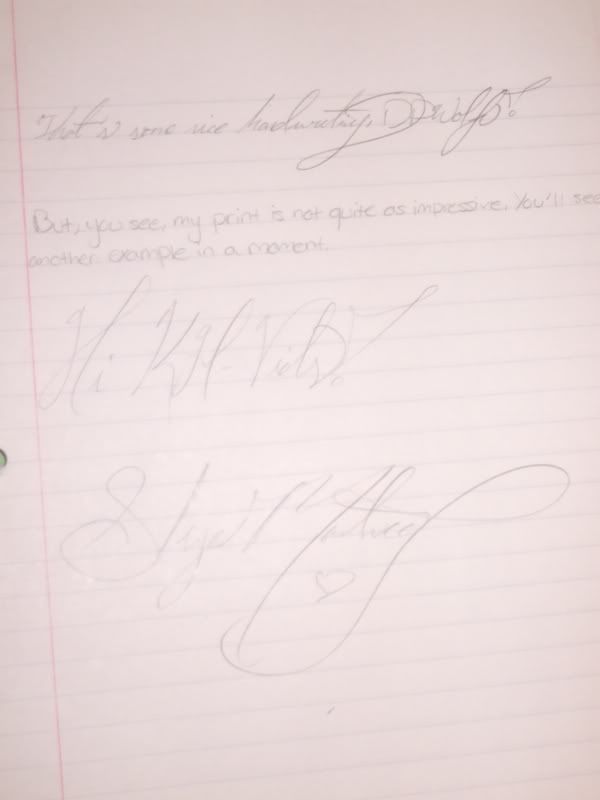 That's some nice handwriting, DDWolf!
But, you see, my print is not quite as impressive. You'll see
another example in a moment.
Hi